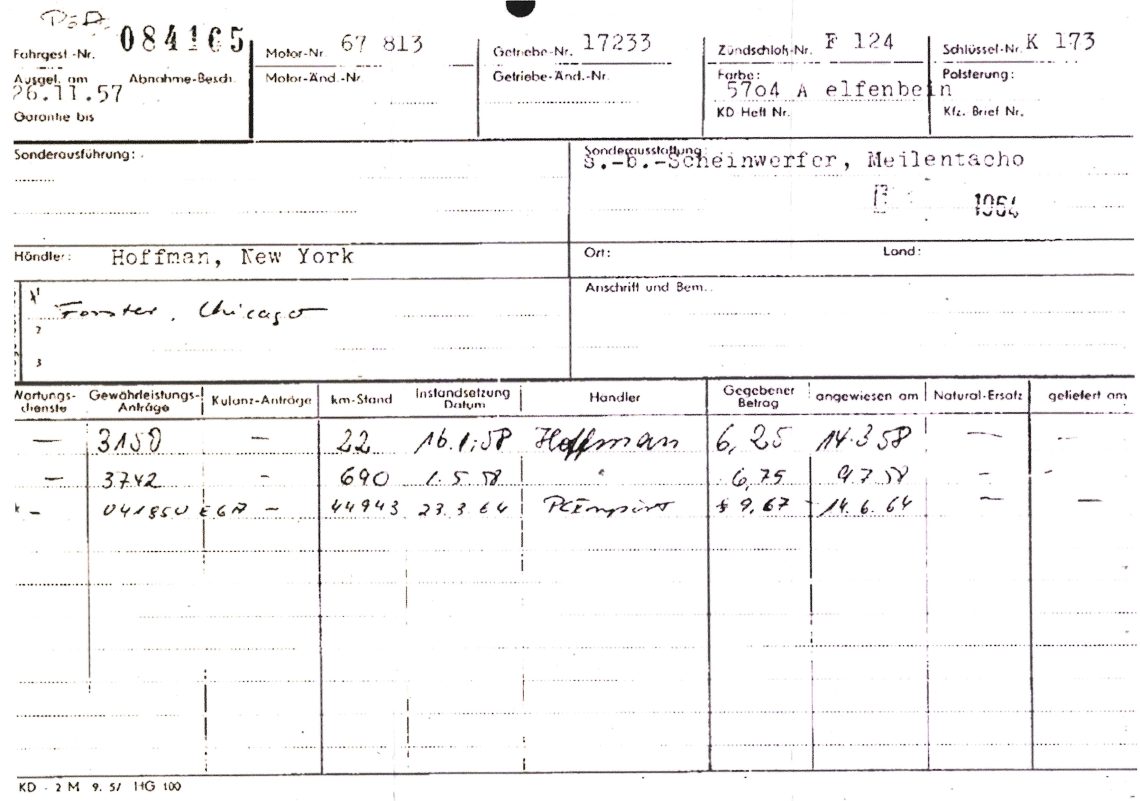 084165 67 813 17233 F 124 K 173
Fahrgest-Nr. Motor-Nr. Getriebe-Nr. Zündschloß-Nr. Schlüssel-Nr.
Ausgel. am Abnahme-Besch. Motor-Änd.-Nr. Getriebe-Änd.-Nr. Farbe: Polsterung:
26.11.57 5704 A elfenbein
Garantie bis KD Heft Nr. Kfz. Brief Nr.
Sonderausführung: Sonderausstattung:
s.-b.-Scheinwerfer, Meilentacho
1964
Händler: Hoffman, New York Ort: Land:
1 Anschrift und Bem.
Forster, Chicago
2
3
Wartungs- Gewährleistungs- Kulanz-Anträge km-Stand Instandsetzung Händler Gegebener angewiesen am Natural-Ersatz geliefert am
dienste Anträge Datum Betrag
— 3150 — 22 16.1.58 Hoffman 6,25 14.3.58 — —
— 3742 — 690 1.5.58 " 6,75 9.7.58 — —
— 44943 23.3.64 $ 9,67 14.6.64 — —
KD - 2 M 9. 57 HG 100